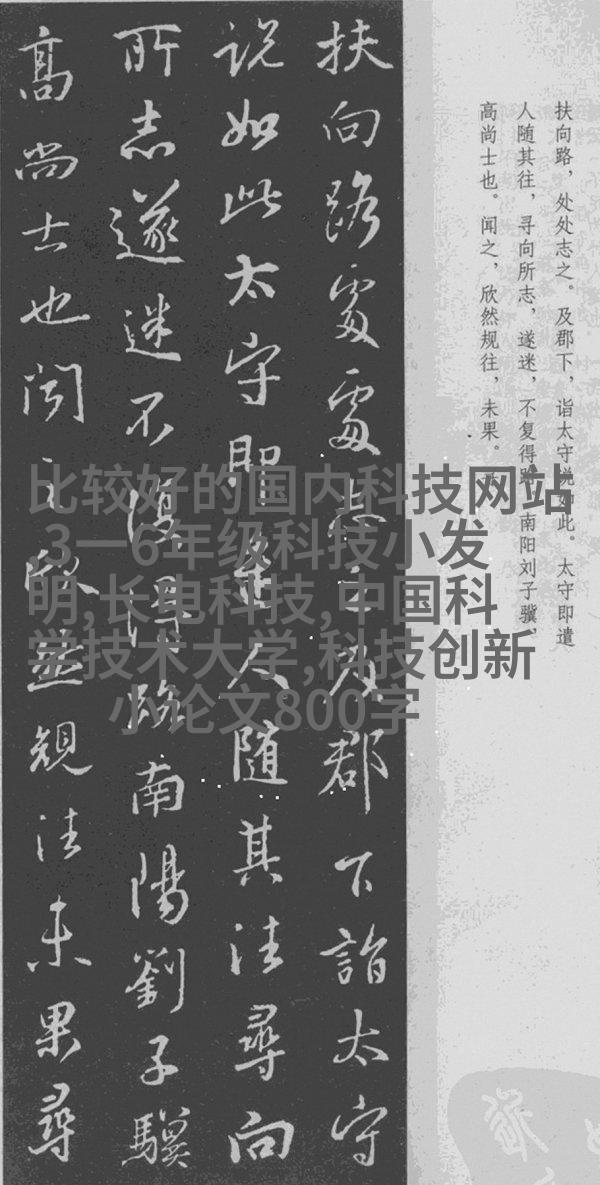 扶向路，处处志之。及郡下，诣太守说如此。太守即遣
人随其往，寻向所志，遂迷，不复得路。南阳刘子骥，
高尚士也。闻之，欣然规往，未果。
扶向路處處志之及郡下詣太守
說如此太守即遣人随其往尋向
所志遂迷不復得路南陽劉子驥
高尚士也聞之欣然規往未果尋
比较好的国内科技网站
,3一6年级科技小发
明,长电科技,中国科
学技术大学,科技创新
小论文800字